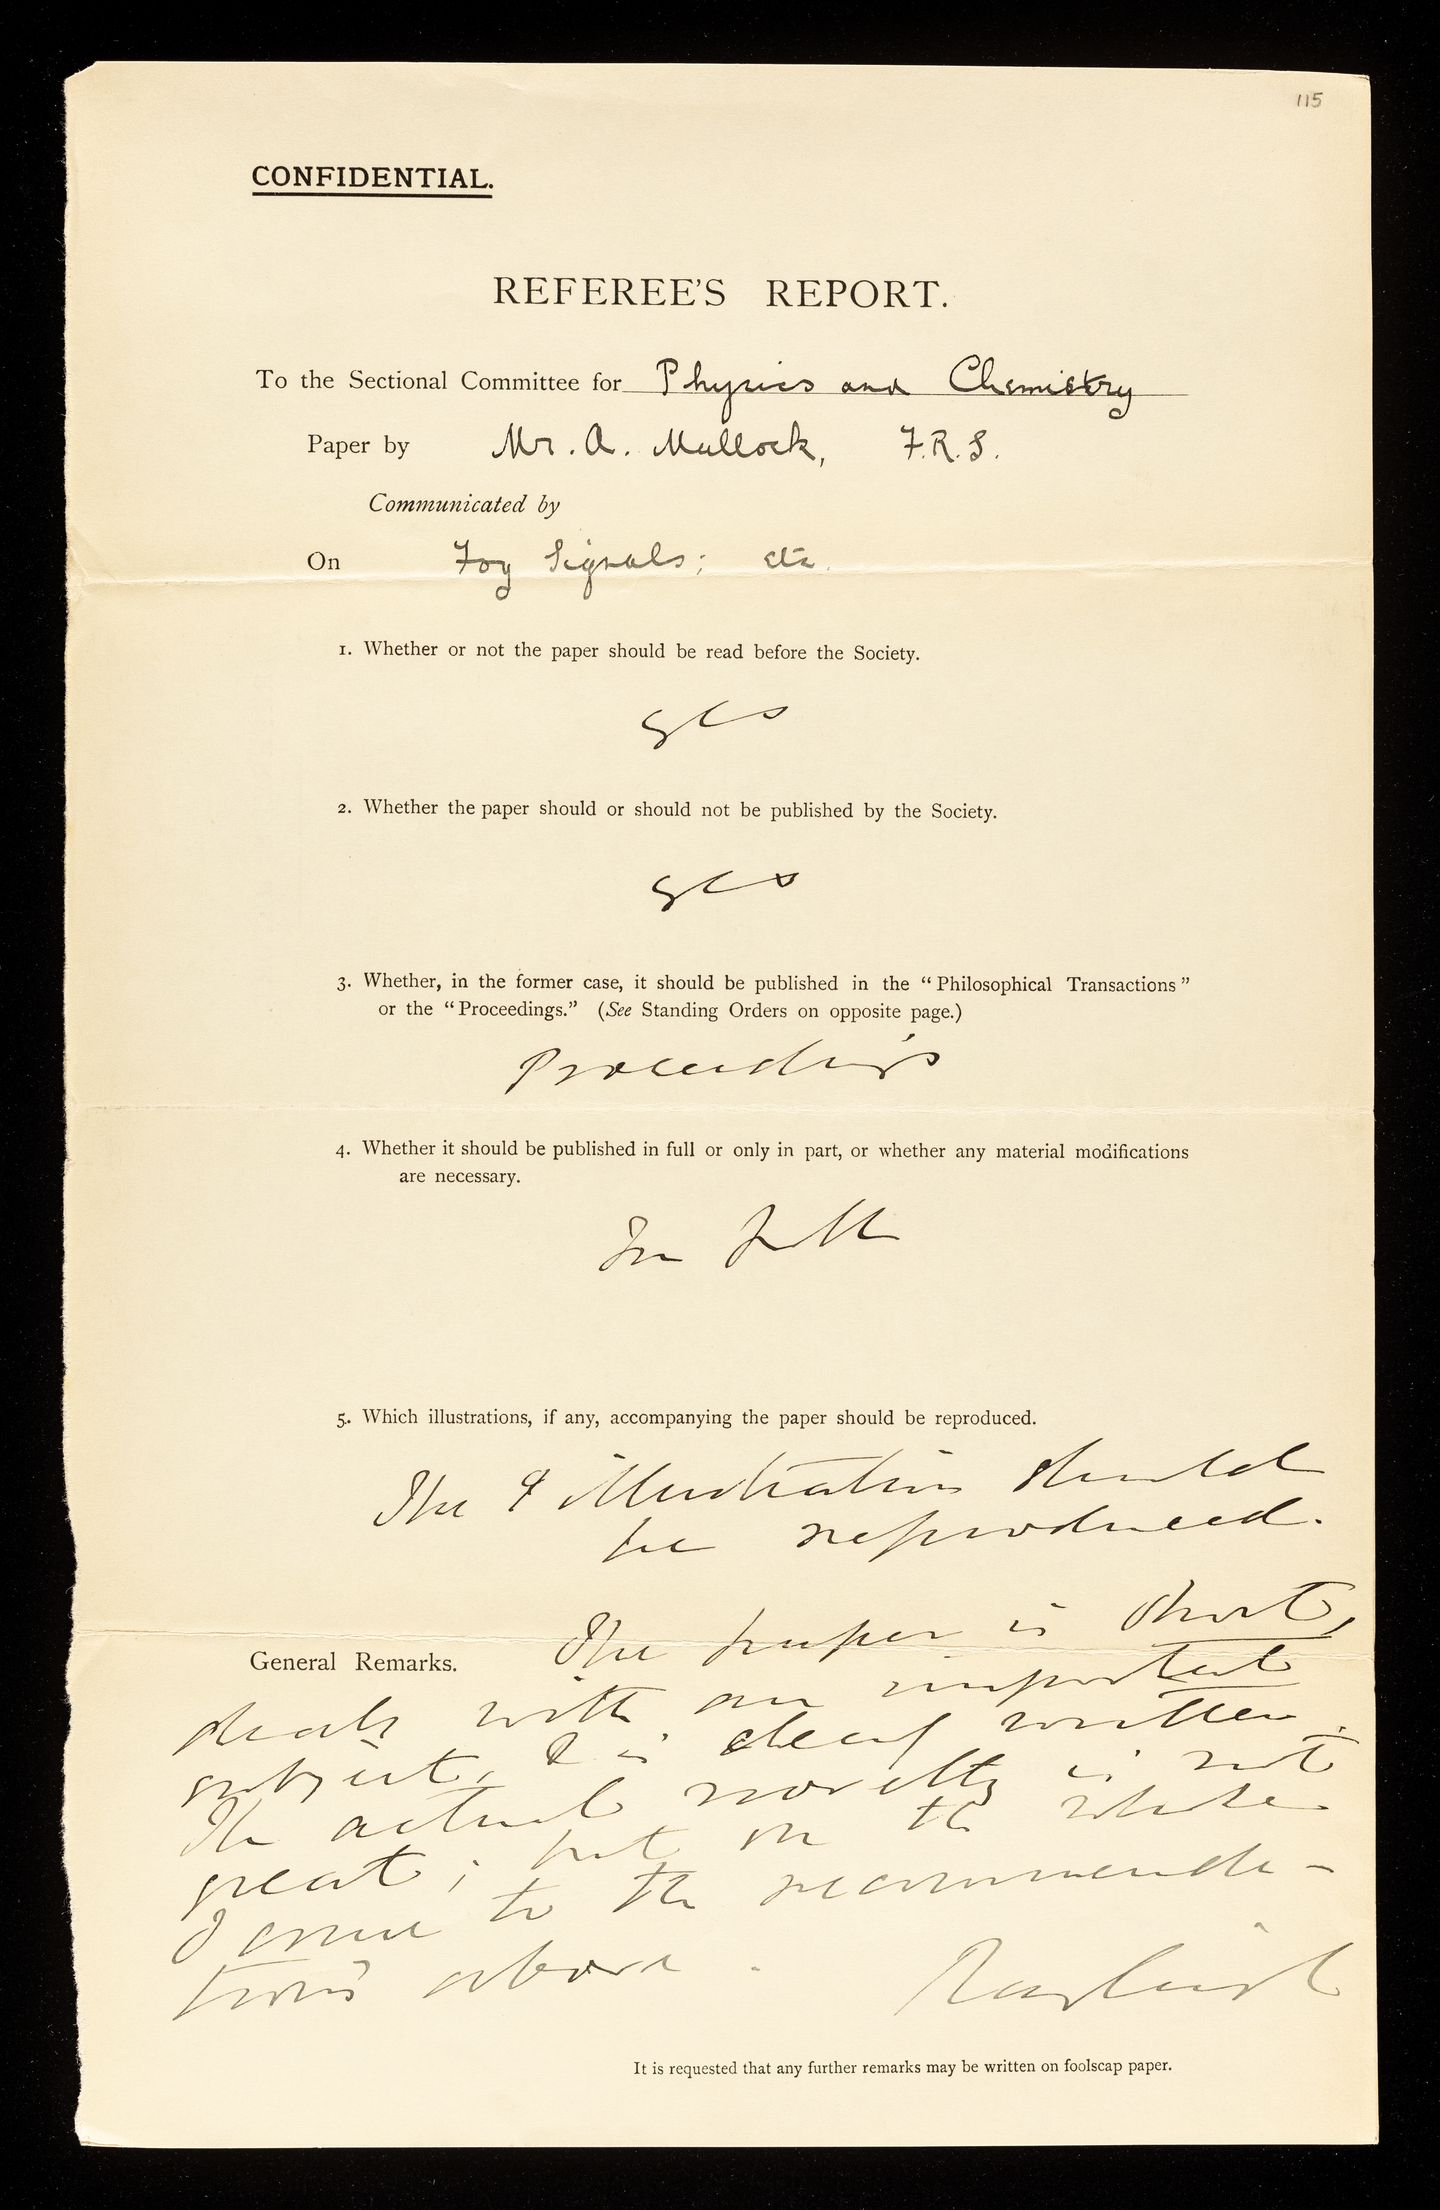 115
CONFIDENTIAL.
REFEREE'S REPORT.
To the Sectional Committee for Physics and Chemistry
Paper by Mr. A. Mallock, F.R.S.
Communicated by
On Fog Signals; etc.
1. Whether or not the paper should be read before the Society.
yes
2. Whether the paper should or should not be published by the Society.
yes
3. Whether, in the former case, it should be published in the “Philosophical Transactions”
or the “Proceedings.” (See Standing Orders on opposite page.)
Proceedings
4. Whether it should be published in full or only in part, or whether any material modifications
are necessary.
In full
5. Which illustrations, if any, accompanying the paper should be reproduced.
The illustrations should
be reproduced.
General Remarks. The paper is short,
deals with an important
subject, & is clearly written.
The actual novelty is not
great; but on the whole
I come to the recommenda-
tions above.
Rayleigh
It is requested that any further remarks may be written on foolscap paper.